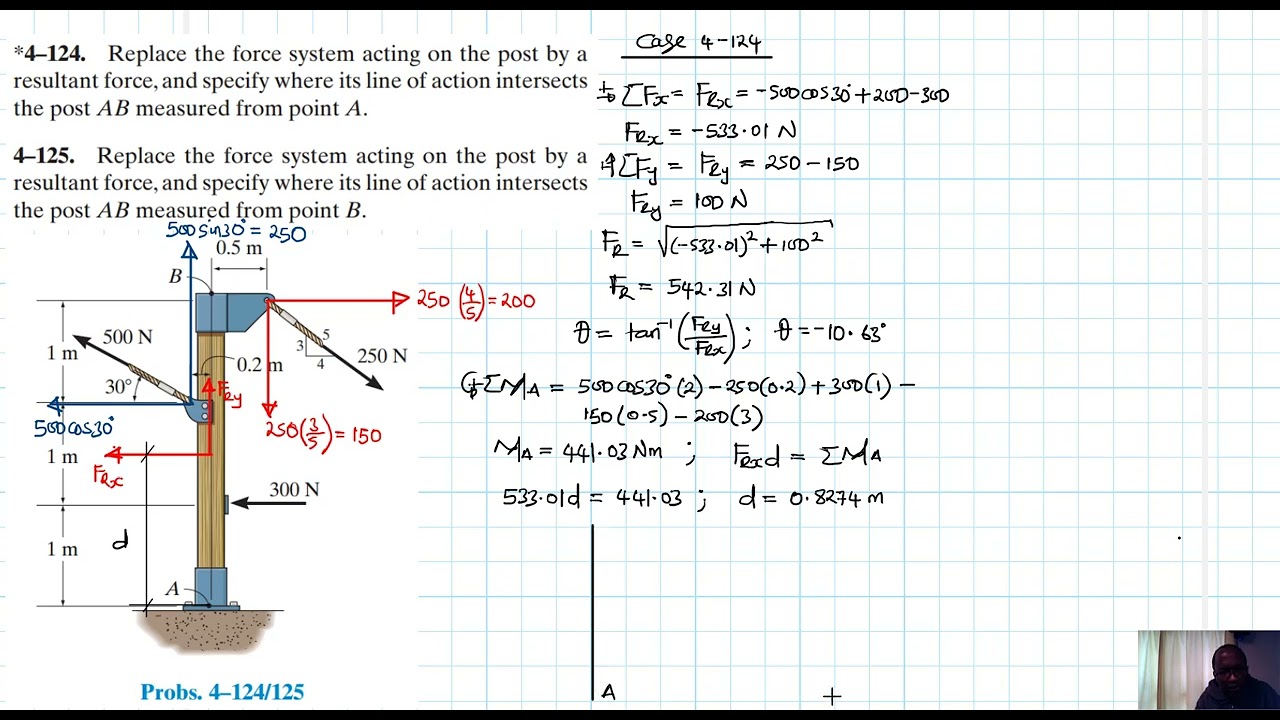 *4–124. Replace the force system acting on the post by a
resultant force, and specify where its line of action intersects
the post AB measured from point A.
4–125. Replace the force system acting on the post by a
resultant force, and specify where its line of action intersects
the post AB measured from point B.
500 sin30° = 250
0.5 m
B
250 (4/5) = 200
500 N
5
3
4
250 N
1 m
0.2 m
30°
FRy
500cos30°
250(3/5) = 150
1 m
FRx
300 N
1 m
d
A
Probs. 4–124/125
Case 4-124
→+ ΣFx = FRx = -500cos30° + 200 - 300
FRx = -533.01 N
+↑ΣFy = FRy = 250 - 150
FRy = 100 N
FR = √(-533.01)² + 100²
FR = 542.31 N
θ = tan⁻¹(FRy/FRx) ; θ = -10.63°
(+ΣMA = 500cos30°(2) - 250(0.2) + 300(1) -
150(0.5) - 200(3)
MA = 441.03 Nm ; FRxd = ΣMA
533.01d = 441.03 ; d = 0.8274 m
A